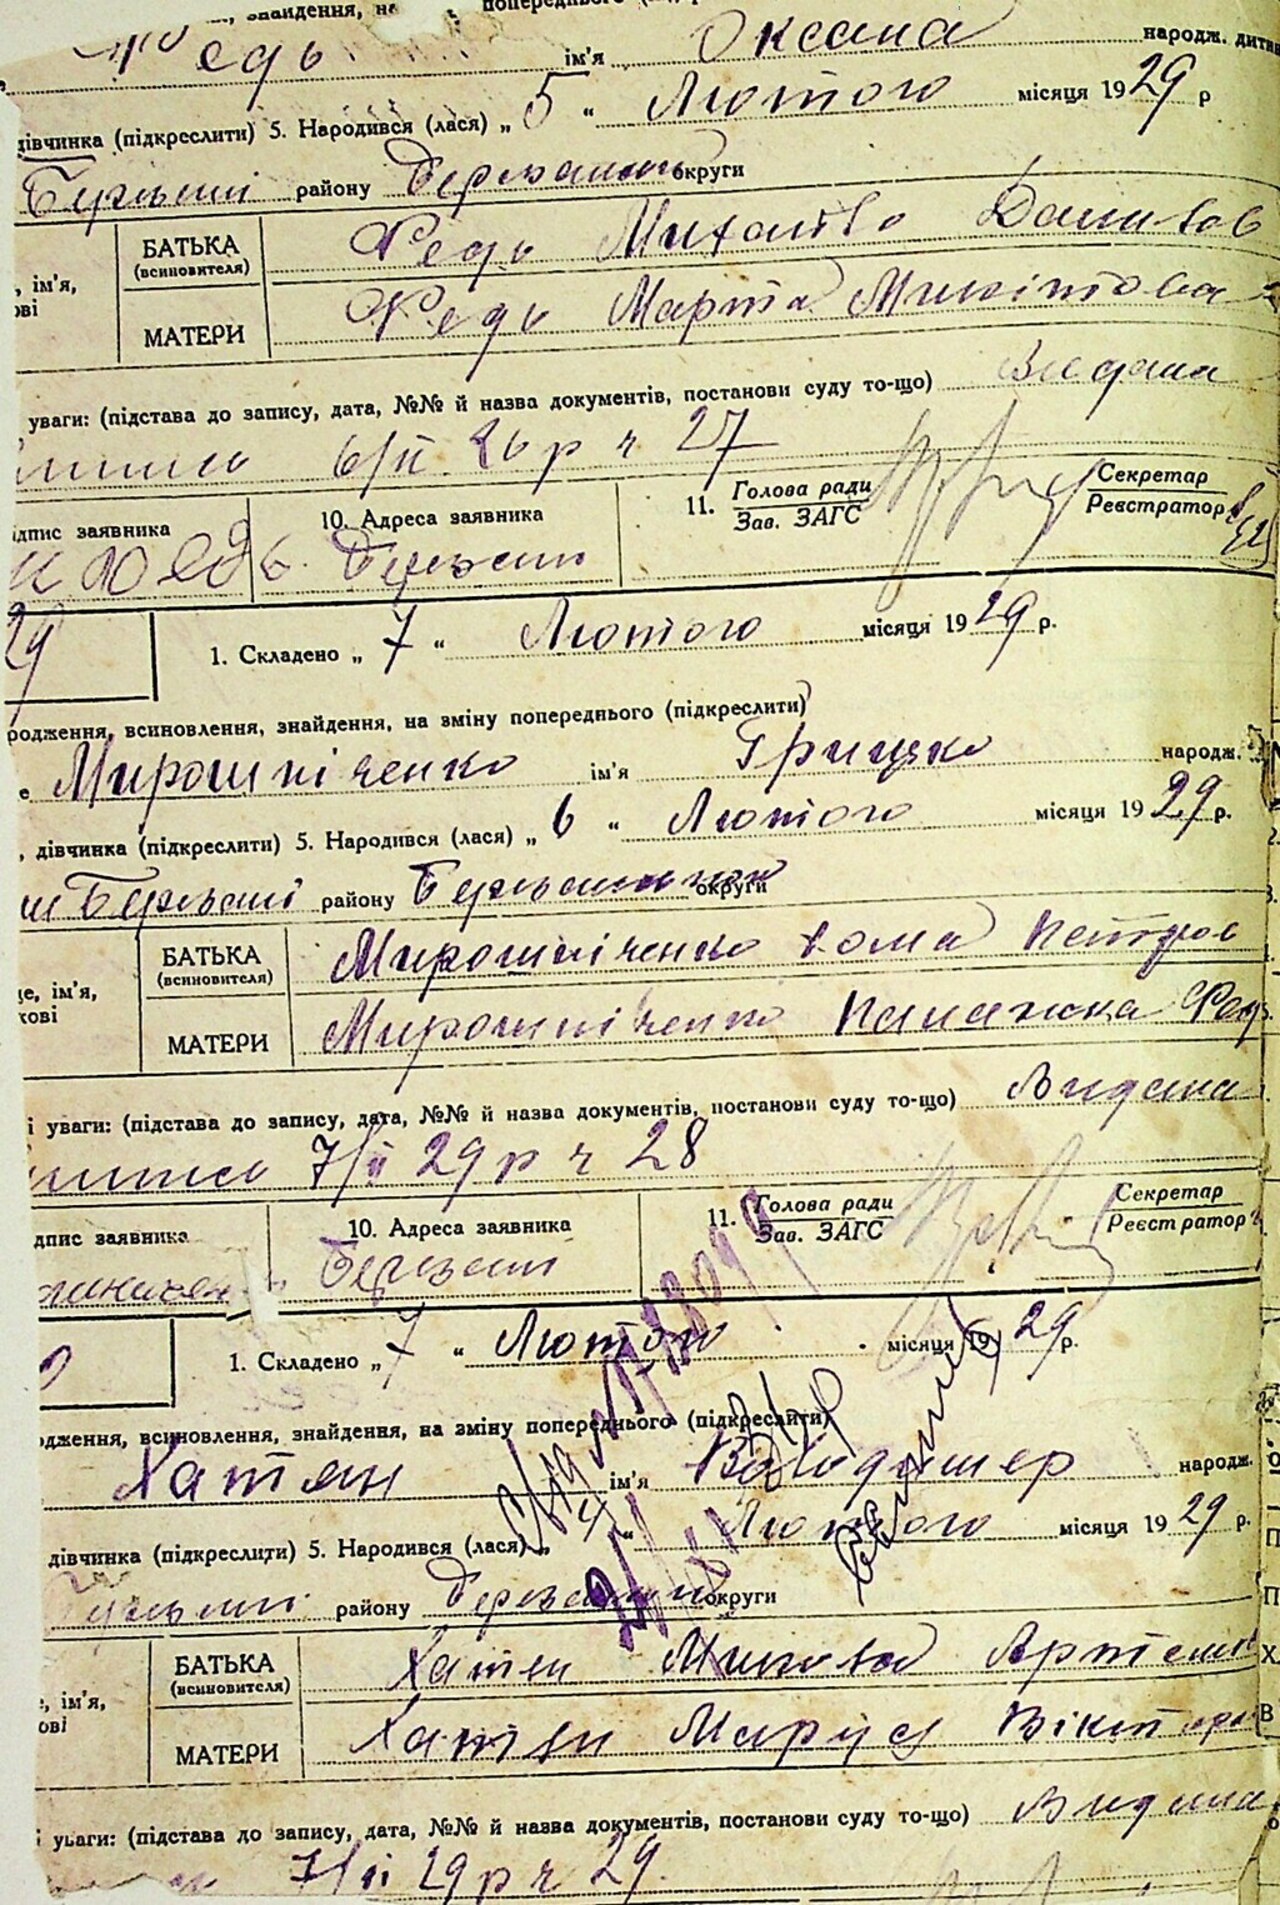 знайдення, попереднього
Федь ім'я Оксана народж. дитин
дівчинка (підкреслити) 5. Народився (лася) „ 5 “ Лютого місяця 1929 р
району округи
БАТЬКА (всиновителя) Федь Михайло Данилов
, ім'я,
ові
МАТЕРИ Федь Марта Микітова
уваги: (підстава до запису, дата, №№ й назва документів, постанови суду то-що) Видана
6/II 26 р ч 27
ідпис заявника 10. Адреса заявника 11. Голова ради Секретар
Зав. ЗАГС Реєстратор
Федь
29 1. Складено „ 7 “ Лютого місяця 1929 р.
родження, всиновлення, знайдення, на зміну попереднього (підкреслити)
е Мирошніченко ім'я Грицько народж.
, дівчинка (підкреслити) 5. Народився (лася) „ 6 “ Лютого місяця 1929 р.
району округи
БАТЬКА (всиновителя) Мирошніченко Хома Петров
це, ім'я,
кові
МАТЕРИ Мирошніченко Палажка Фед
і уваги: (підстава до запису, дата, №№ й назва документів, постанови суду то-що) Видана
7/II 29 р ч 28
дпис заявника 10. Адреса заявника 11. Голова ради Секретар
Зав. ЗАГС Реєстратор
1. Складено „ 7 “ Лютого місяця 1929 р.
одження, всиновлення, знайдення, на зміну попереднього (підкреслити)
Хатян ім'я Володимер народж.
дівчинка (підкреслити) 5. Народився (лася) „ 4 “ Лютого місяця 1929 р.
району округи
БАТЬКА (всиновителя) Хатян Микола Артемов
е, ім'я,
ові
МАТЕРИ Хатян Маруся Віктор
і уваги: (підстава до запису, дата, №№ й назва документів, постанови суду то-що) Видана
7/II 29 р ч 29.